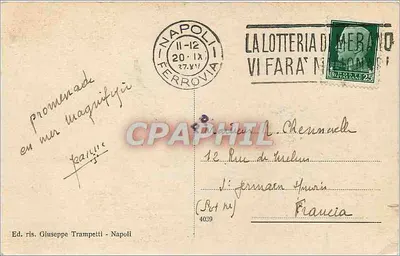 NAPOLI
11-12
20·IX
37·XV
FERROVIA
LA LOTTERIA DI MERANO
VI FARA' MILIONARI
promenade
en mer magnifique
CPAPHIL
Monsieur
12 Rue de Melun
St Germain
Francia
4029
Ed. ris. Giuseppe Trampetti - Napoli